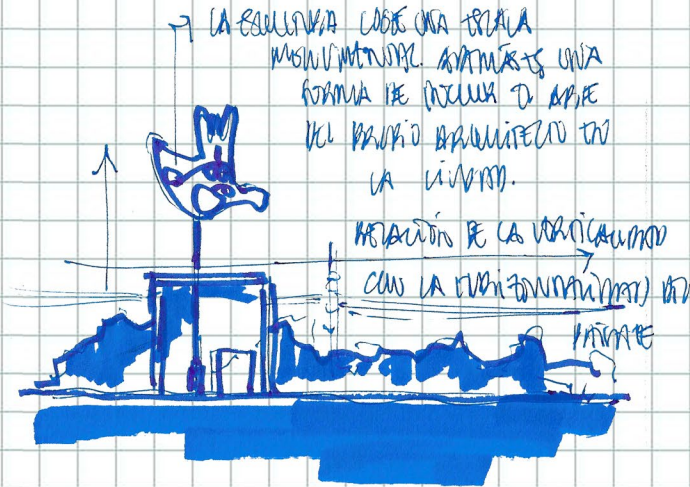 LA ESCULTURA COGE UNA ESCALA
MONUMENTAL. ADEMÁS ES UNA
FORMA DE INCLUIR EL ARTE
DEL PROPIO ARQUITECTO EN
LA CIUDAD.
RELACIÓN DE LA VERTICALIDAD
CON LA HORIZONTALIDAD DEL
PAISAJE